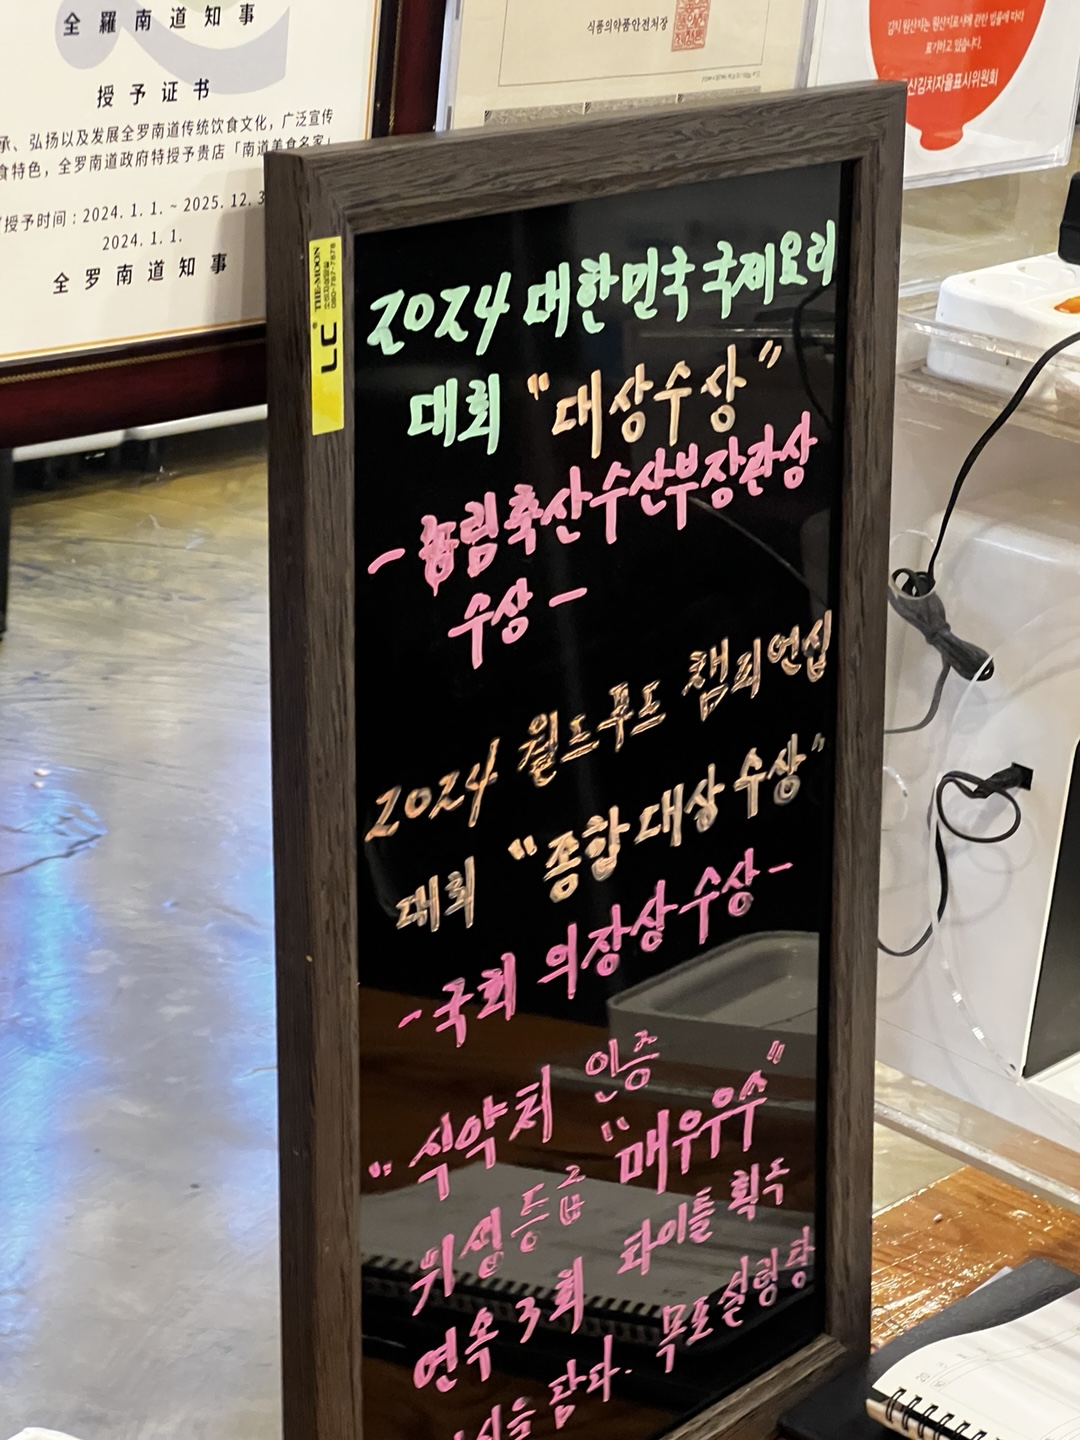 全羅南道知事
授予证书
承、弘扬以及发展全罗南道传统饮食文化，广泛宣传
食特色，全罗南道政府特授予贵店「南道美食名家」
授予时间 : 2024. 1. 1. ~ 2025. 12. 3
2024. 1. 1.
全罗南道知事
식품의약품안전처장
김치 원산지는 원산지표시에 관한 법률에 따라
표기하고 있습니다.
산김치자율표시위원회
THE-MOON
080-787-7878
2024 대한민국 국제요리
대회 "대상수상"
- 농림축산수산부장관상
수상 -
2024 월드푸드 챔피언십
대회 "종합대상수상"
- 국회 의장상수상 -
"식약처 인증
위생등급 "매우우수"
연속 3회 타이틀 획득
을 담다. 목포실링탕